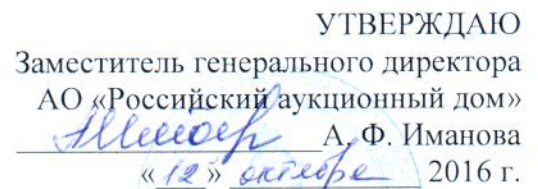 УТВЕРЖДАЮ
Заместитель генерального директора
АО «Российский аукционный дом»
А. Ф. Иманова
«12» октября 2016 г.